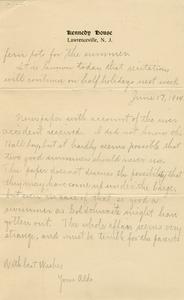 Kennedy House
Lawrenceville, N. J.
fern pots for the summer.
It is known today that recitations
will continue on half holidays next week
June 17, 19
Newspaper with account of the
accident received. I did not know the
Hall boy, but it hardly seems possible that
two good swimmers should never rise.
The paper does discuss the possibility that
they may have come up under the barge,
but even in case of that so good a
swimmer as Goldthwaite might have
gotten out. The whole affair seems very
strange, and must be terrible for the parents
With best wishes
Your Aldo.